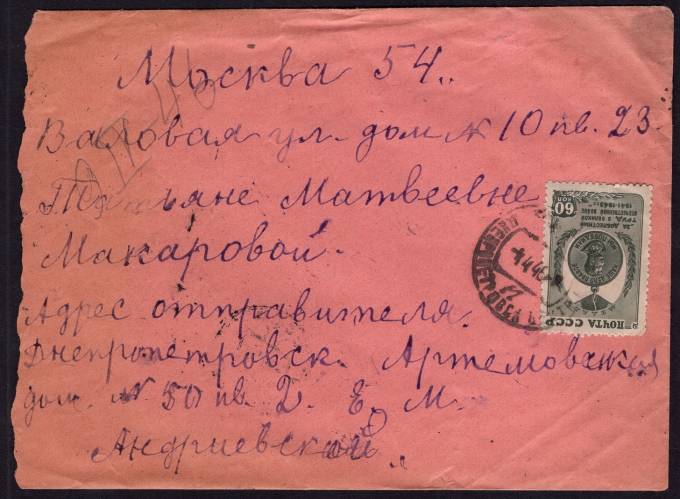 Москва 54.
Валовая ул. дом № 10 кв. 23.
Татьяне Матвеевне
Макаровой.
Адрес отправителя.
Днепропетровск. Артемовская
дом. № 50 кв. 2. Е. М.
Андриевской
60 коп
"ЗА ДОБЛЕСТНЫЙ
ТРУД В ВЕЛИКОЙ
ОТЕЧЕСТВЕННОЙ ВОЙНЕ
1941-1945 гг."
ПОЧТА СССР